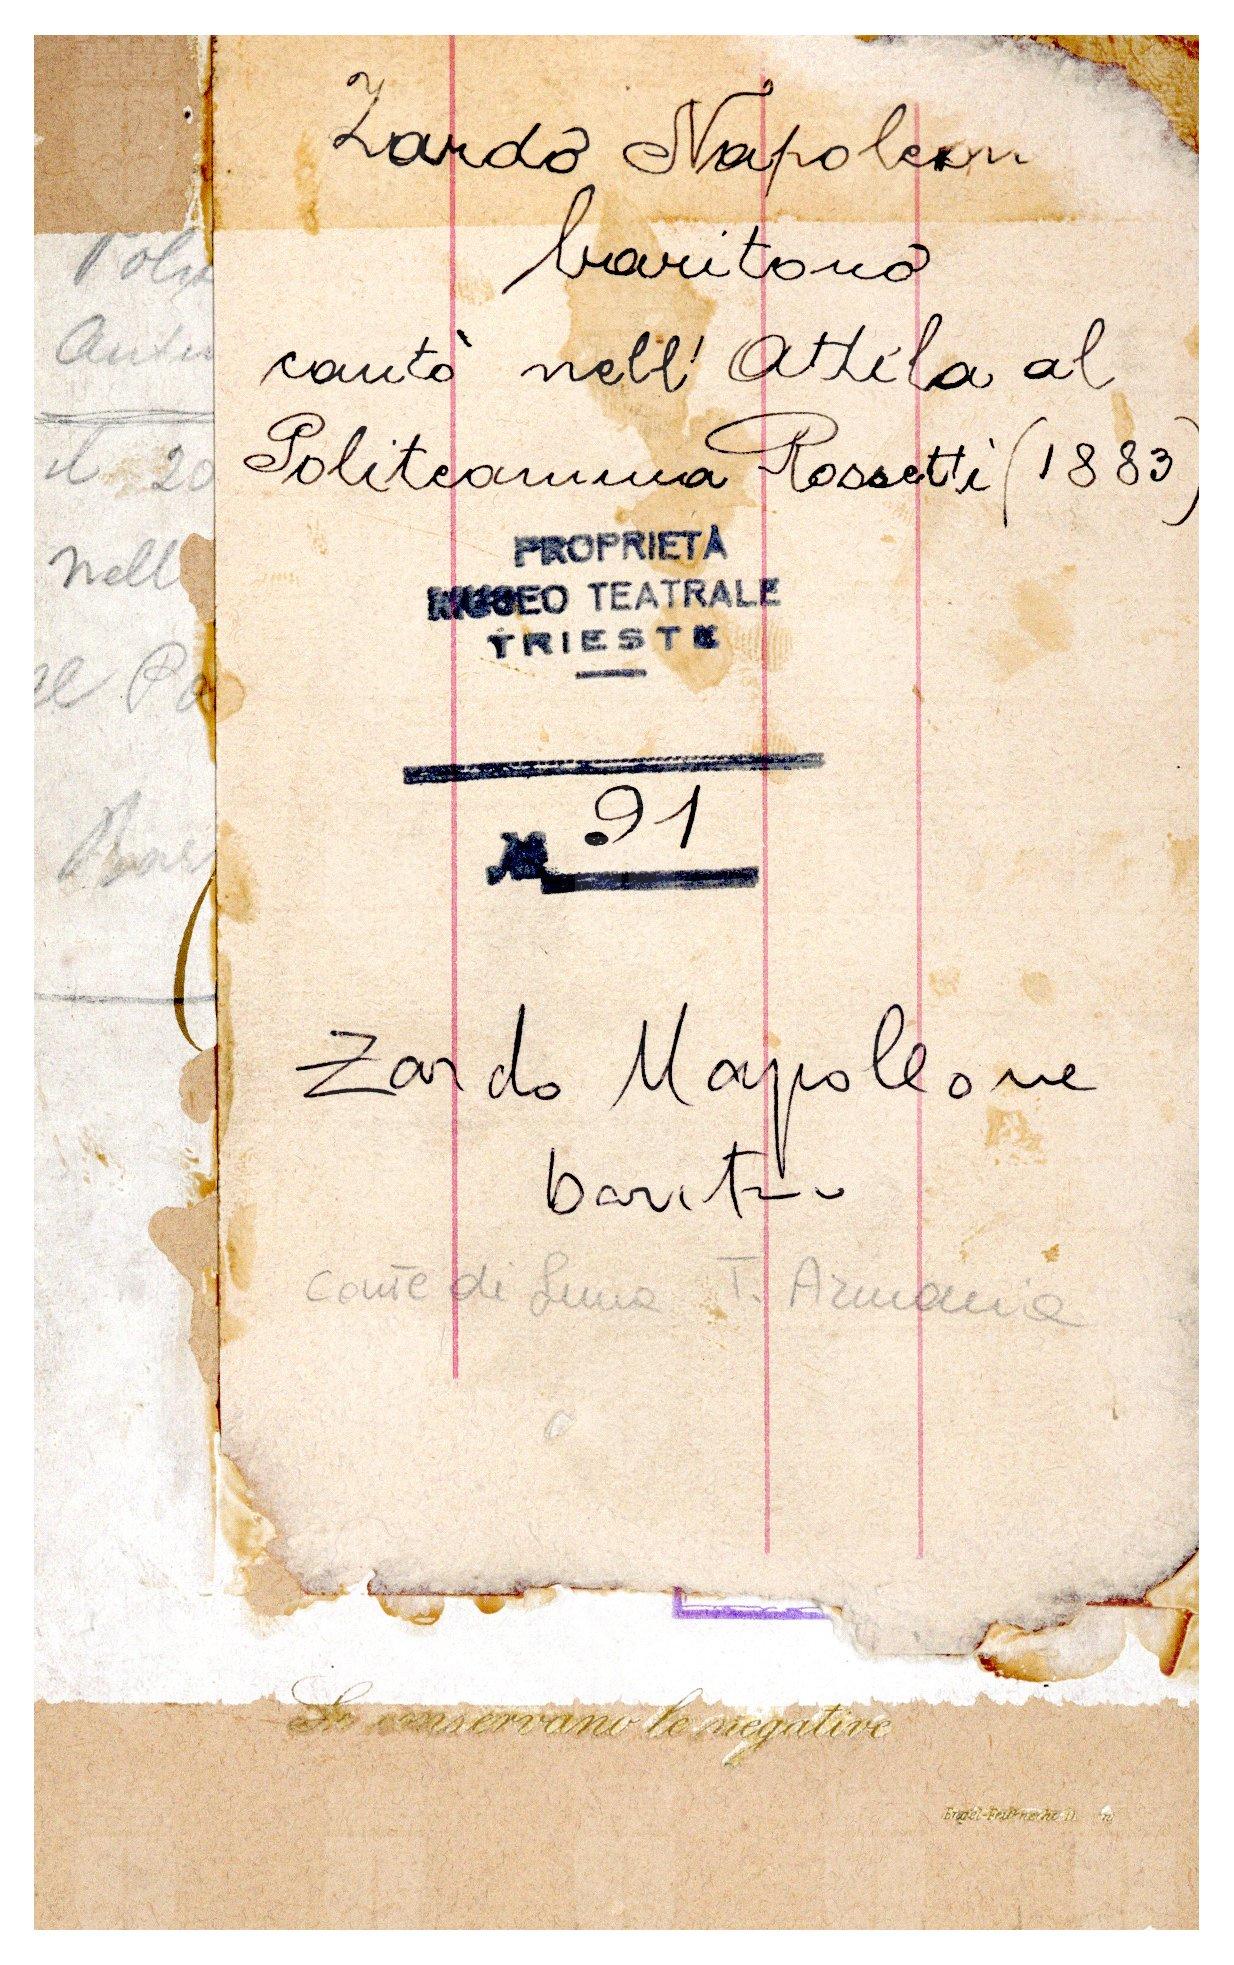 Zardo Napoleon
baritono
cantò nell' Attila al
Politeamma Rossetti (1883)
PROPRIETÀ
MUSEO TEATRALE
TRIESTE
91
Zardo Napoleone
baritono
conte di Luna T. Armonia
il 20
nell
al Po
Se conservano le negative